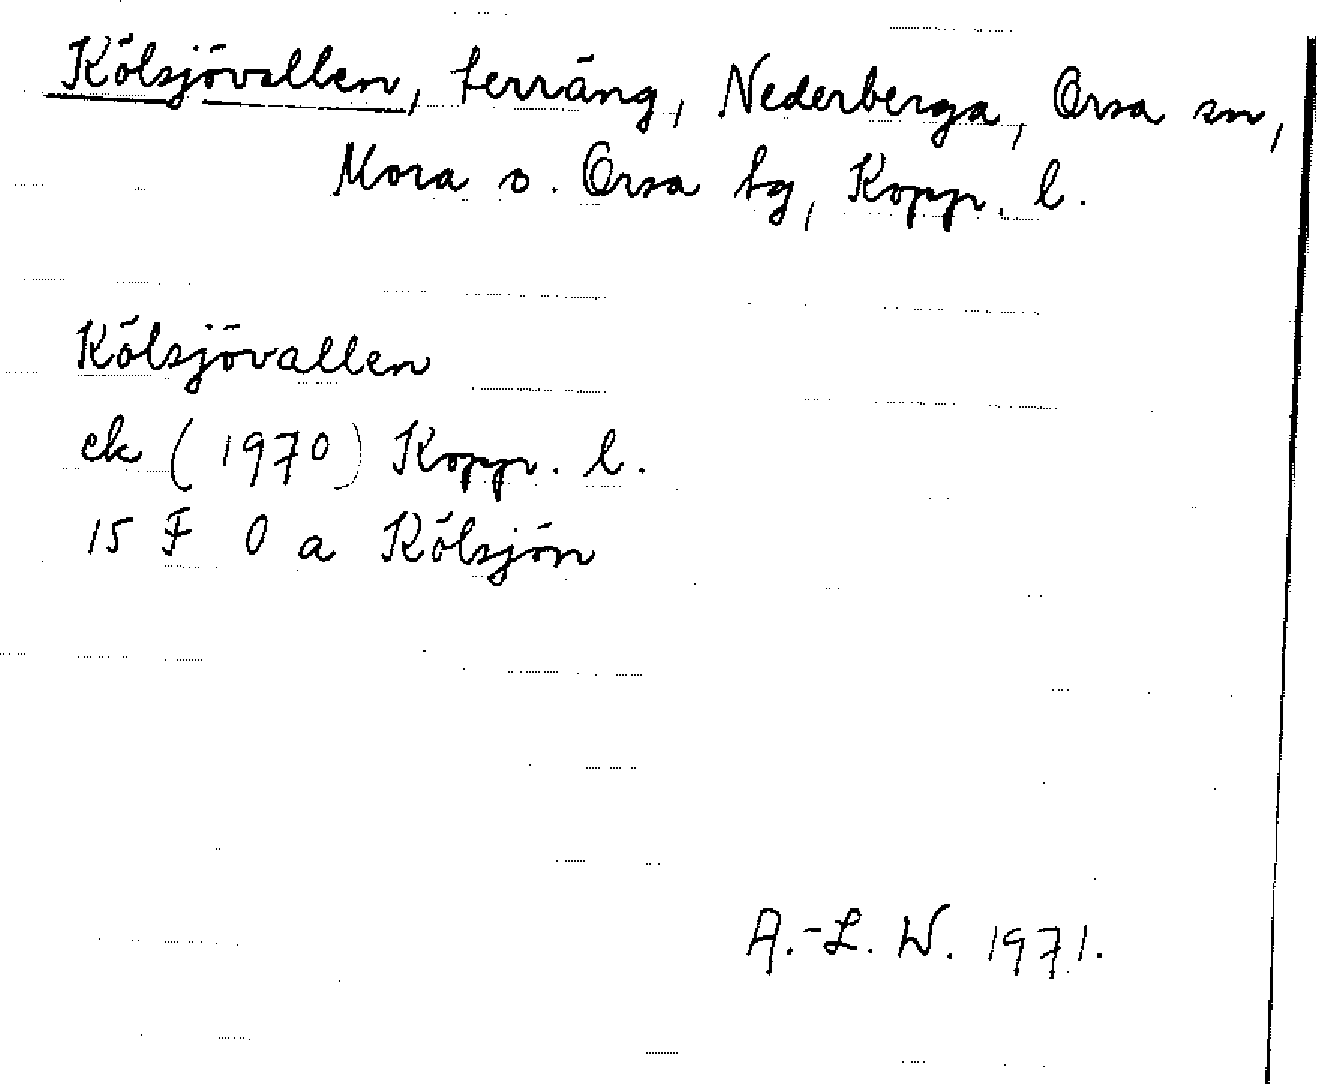 Kölsjövallen, terräng, Nederberga, Orsa sn,
Mora o. Orsa tg, Kopp. l.
Kölsjövallen
ek (1970) Kopp. l.
15 F 0 a Kölsjön
A.-L. W. 1971.